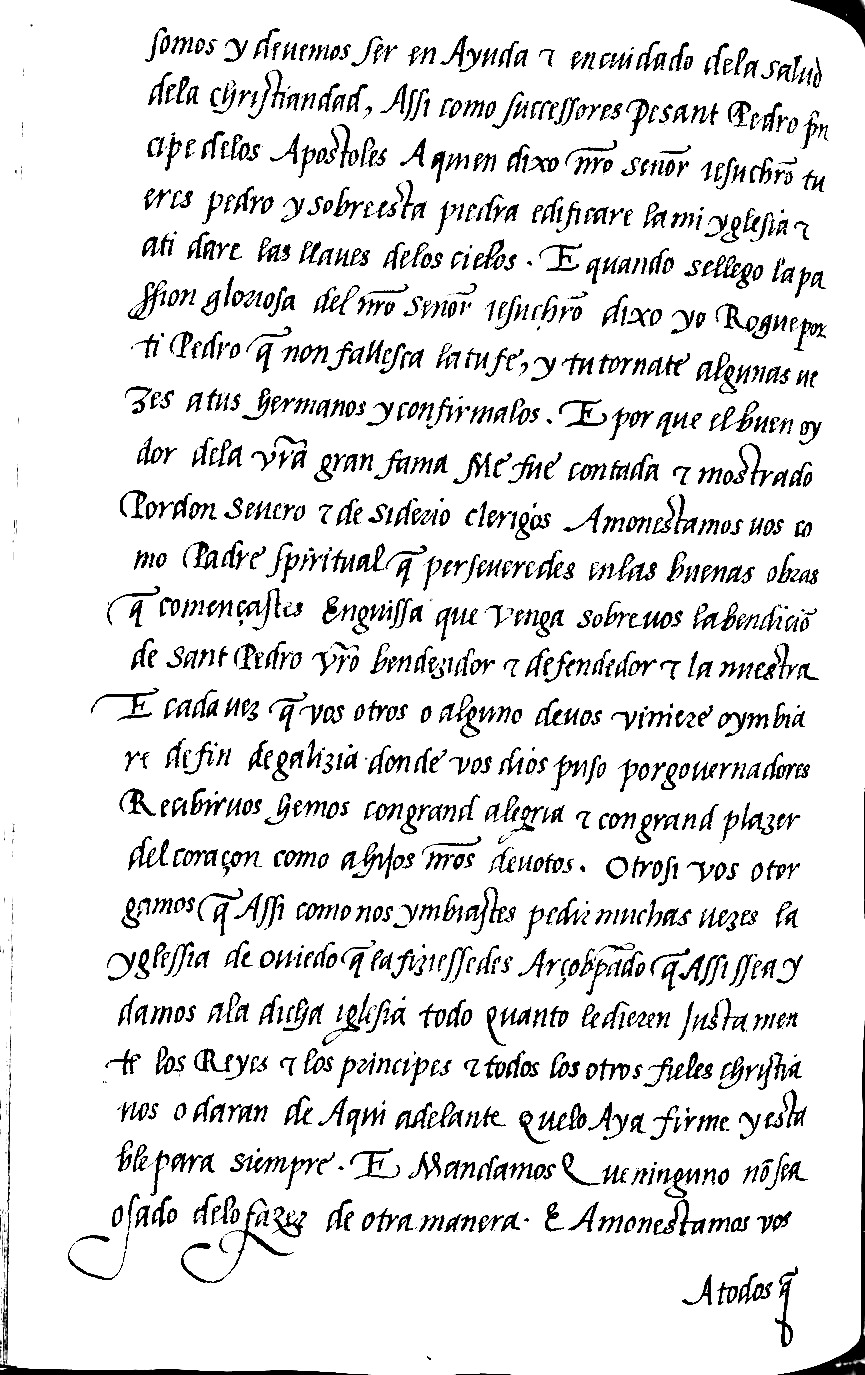 somos y deuemos ser en Ayuda ⁊ encuidado dela salud
dela christiandad, Assi como successores Desant Pedro p̃n
cipe delos Apostoles A quien dixo nr̃o señor iesuchr̃o tu
eres pedro y sobre esta piedra edificare la mi yglesia ⁊
ati dare las llaues delos cielos. E quando sellego la pa
ssion gloriosa del nr̃o señor iesuchr̃o dixo yo Rogue por
ti Pedro q̃ non fallesca la tu fe, y tu tornate algunas ue
zes a tus hermanos y confirmalos. E por que el buen oy
dor dela vr̃a gran fama Me fue contada ⁊ mostrado
Por don seuero ⁊ de siderio clerigos Amonestamos uos co
mo Padre spiritual q̃ perseueredes en las buenas obras
q̃ començastes Enguissa que venga sobre uos la bendiciõ
de sant Pedro vr̃o bendezidor ⁊ defendedor ⁊ la nuestra
E cada uez q̃ vos otros o alguno deuos viniere o ymbia
re de fin de galizia donde vos dios puso por gouernadores
Recibir uos hemos con grand alegria ⁊ con grand plazer
del coraçon como a hijos nr̃os deuotos. Otrosi vos otor
gamos q̃ Assi como nos ymbiastes pedir muchas uezes la
yglessia de ouiedo q̃ la fiziessedes Arçobp̃ado q̃ Assi sea y
damos ala dicha iglesia todo quanto le dieren Justamen
te los Reyes ⁊ los principes ⁊ todos los otros fieles christia
nos o daran de Aqui adelante quelo Aya firme y esta
ble para siempre. E Mandamos Que ninguno nõ sea
osado delo fazer de otra manera. E Amonestamos vos
A todos q̃